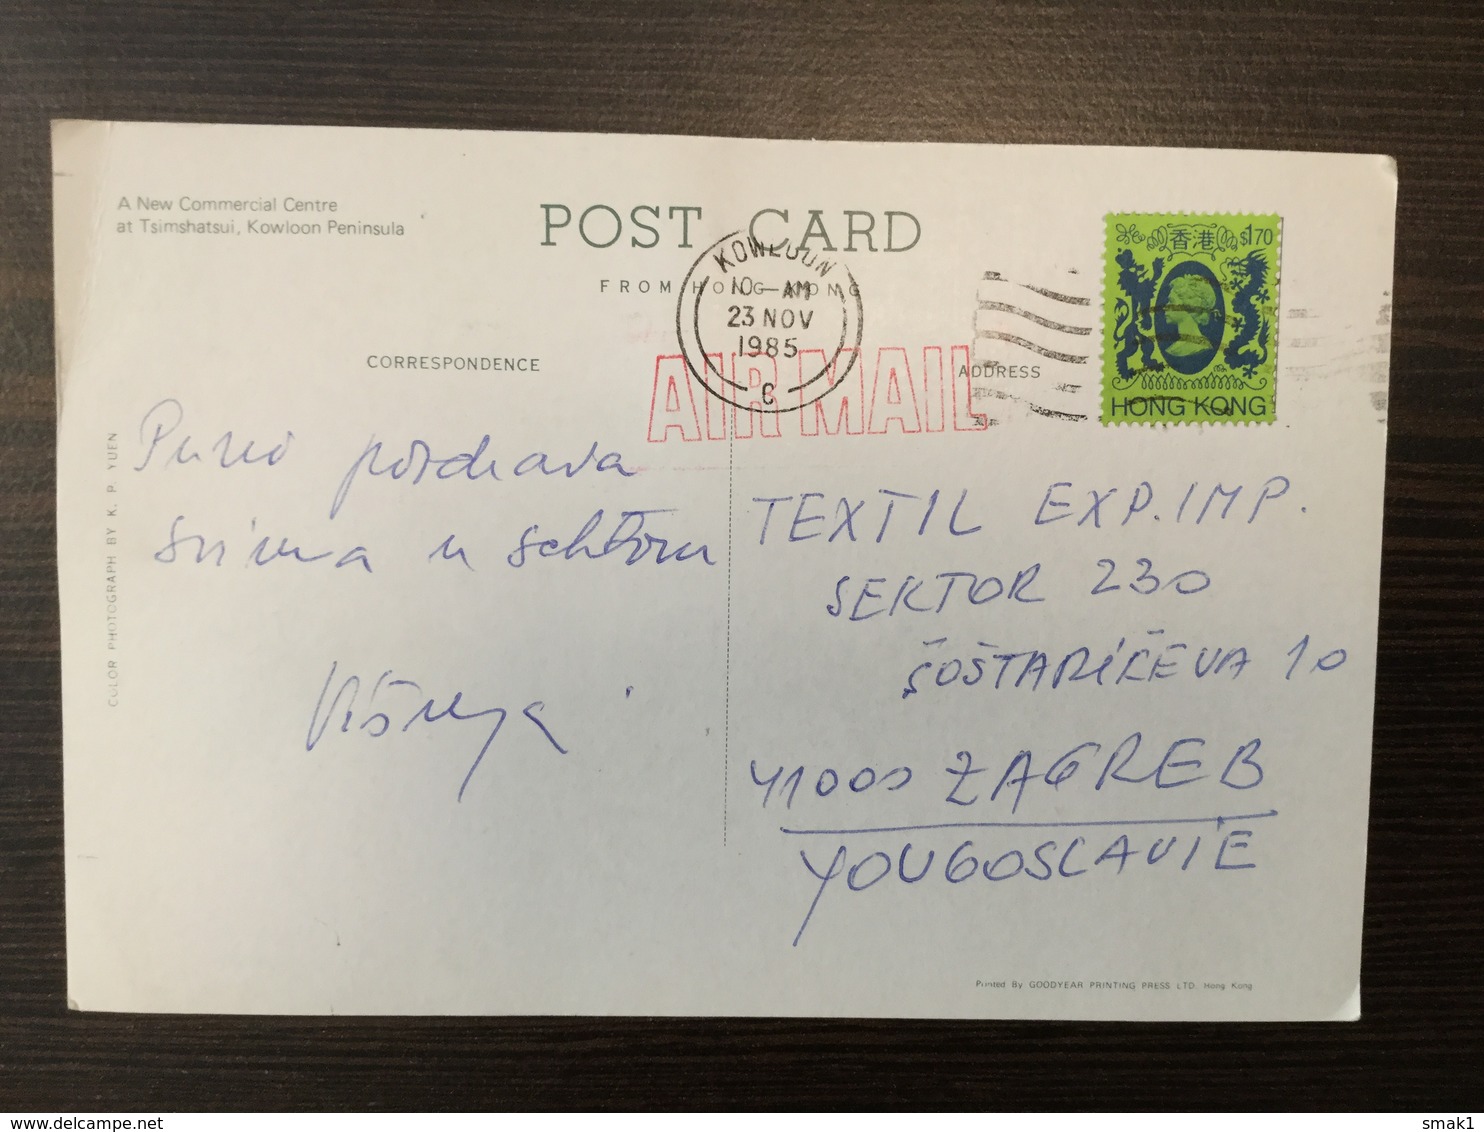 A New Commercial Centre
at Tsimshatsui, Kowloon Peninsula
POST CARD
FROM HONG KONG
KOWLOON
10 - AM
23 NOV
1985
C
香港
$1.70
HONG KONG
AIR MAIL
CORRESPONDENCE
ADDRESS
COLOR PHOTOGRAPH BY K. P. YUEN
Puno pozdrava
svima u sektoru
Višnja
TEXTIL EXP. IMP.
SEKTOR 230
ŠOŠTARIĆEVA 10
41000 ZAGREB
YOUGOSLAVIE
Printed By GOODYEAR PRINTING PRESS LTD. Hong Kong
delcampe.net
smak1